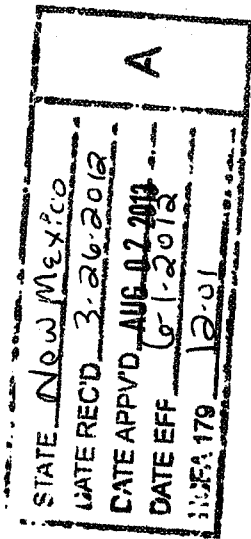 STATE New Mexico
DATE REC'D 3-26-2012
DATE APPV'D AUG 02 2012
DATE EFF 6-1-2012
HCFA 179 12-01
A